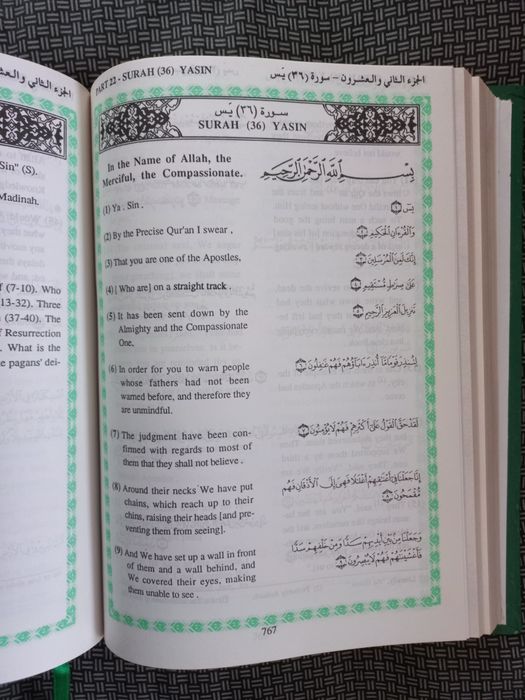 الجزء الثاني والعش
Sin" (S).
Madinah.
f (7-10). Who
13-32). Three
(37-40). The
f Resurrection
. What is the
e pagans' dei-
PART 22 - SURAH (36) YASIN
الجزء الثاني والعشرون - سورة (٣٦) يٓس
سورة (٣٦) يٓس
SURAH (36) YASIN
In the Name of Allah, the
Merciful, the Compassionate.
بِسْمِ ٱللَّهِ ٱلرَّحْمَٰنِ ٱلرَّحِيمِ
(1) Ya . Sin .
يسٓ ١
(2) By the Precise Qur'an I swear ,
وَٱلْقُرْءَانِ ٱلْحَكِيمِ ٢
(3) That you are one of the Apostles,
إِنَّكَ لَمِنَ ٱلْمُرْسَلِينَ ٣
(4)[ Who are] on a straight track .
عَلَىٰ صِرَٰطٍ مُّسْتَقِيمٍ ٤
(5) It has been sent down by the
Almighty and the Compassionate
One.
تَنزِيلَ ٱلْعَزِيزِ ٱلرَّحِيمِ ٥
(6) In order for you to warn people
whose fathers had not been
warned before, and therefore they
are unmindful.
لِتُنذِرَ قَوْمًا مَّآ أُنذِرَ ءَابَآؤُهُمْ فَهُمْ غَٰفِلُونَ ٦
(7) The judgment have been con-
firmed with regards to most of
them that they shall not believe .
لَقَدْ حَقَّ ٱلْقَوْلُ عَلَىٰٓ أَكْثَرِهِمْ فَهُمْ لَا يُؤْمِنُونَ ٧
(8) Around their necks We have put
chains, which reach up to their
chins, raising their heads [and pre-
venting them from seeing].
إِنَّا جَعَلْنَا فِىٓ أَعْنَٰقِهِمْ أَغْلَٰلًا فَهِىَ إِلَى ٱلْأَذْقَانِ فَهُم
مُّقْمَحُونَ ٨
(9) And We have set up a wall in front
of them and a wall behind, and
We covered their eyes, making
them unable to see .
وَجَعَلْنَا مِنۢ بَيْنِ أَيْدِيهِمْ سَدًّا وَمِنْ خَلْفِهِمْ سَدًّا
فَأَغْشَيْنَٰهُمْ فَهُمْ لَا يُبْصِرُونَ ٩
767